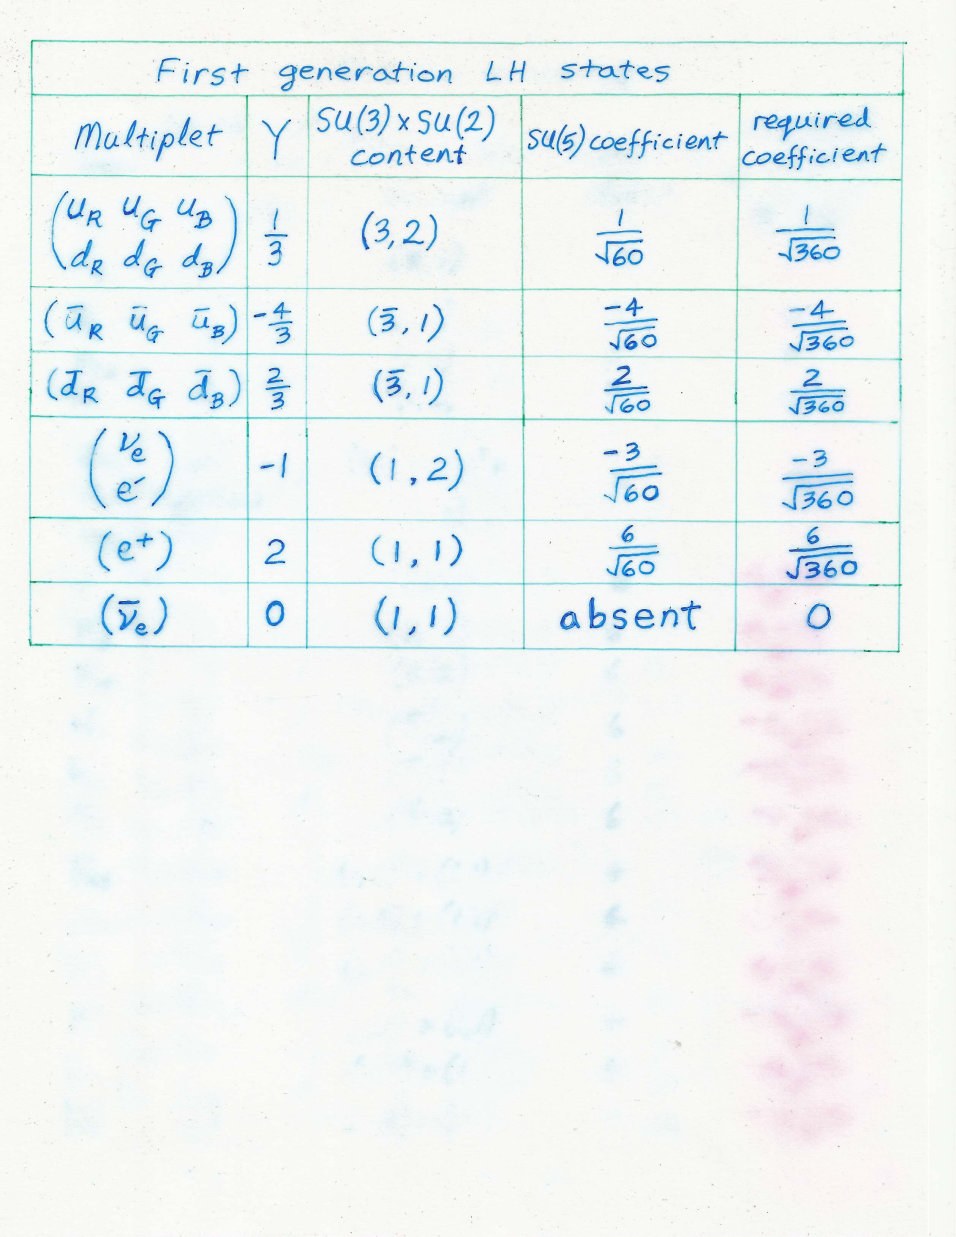 First generation LH states
Multiplet Y SU(3) x SU(2) content SU(5) coefficient required coefficient
(u_R u_G u_B
d_R d_G d_B) 1/3 (3,2) 1/√60 1/√360
(ū_R ū_G ū_B) -4/3 (3̄,1) -4/√60 -4/√360
(d̄_R d̄_G d̄_B) 2/3 (3̄,1) 2/√60 2/√360
(ν_e
e⁻) -1 (1,2) -3/√60 -3/√360
(e⁺) 2 (1,1) 6/√60 6/√360
(ν̄_e) 0 (1,1) absent 0